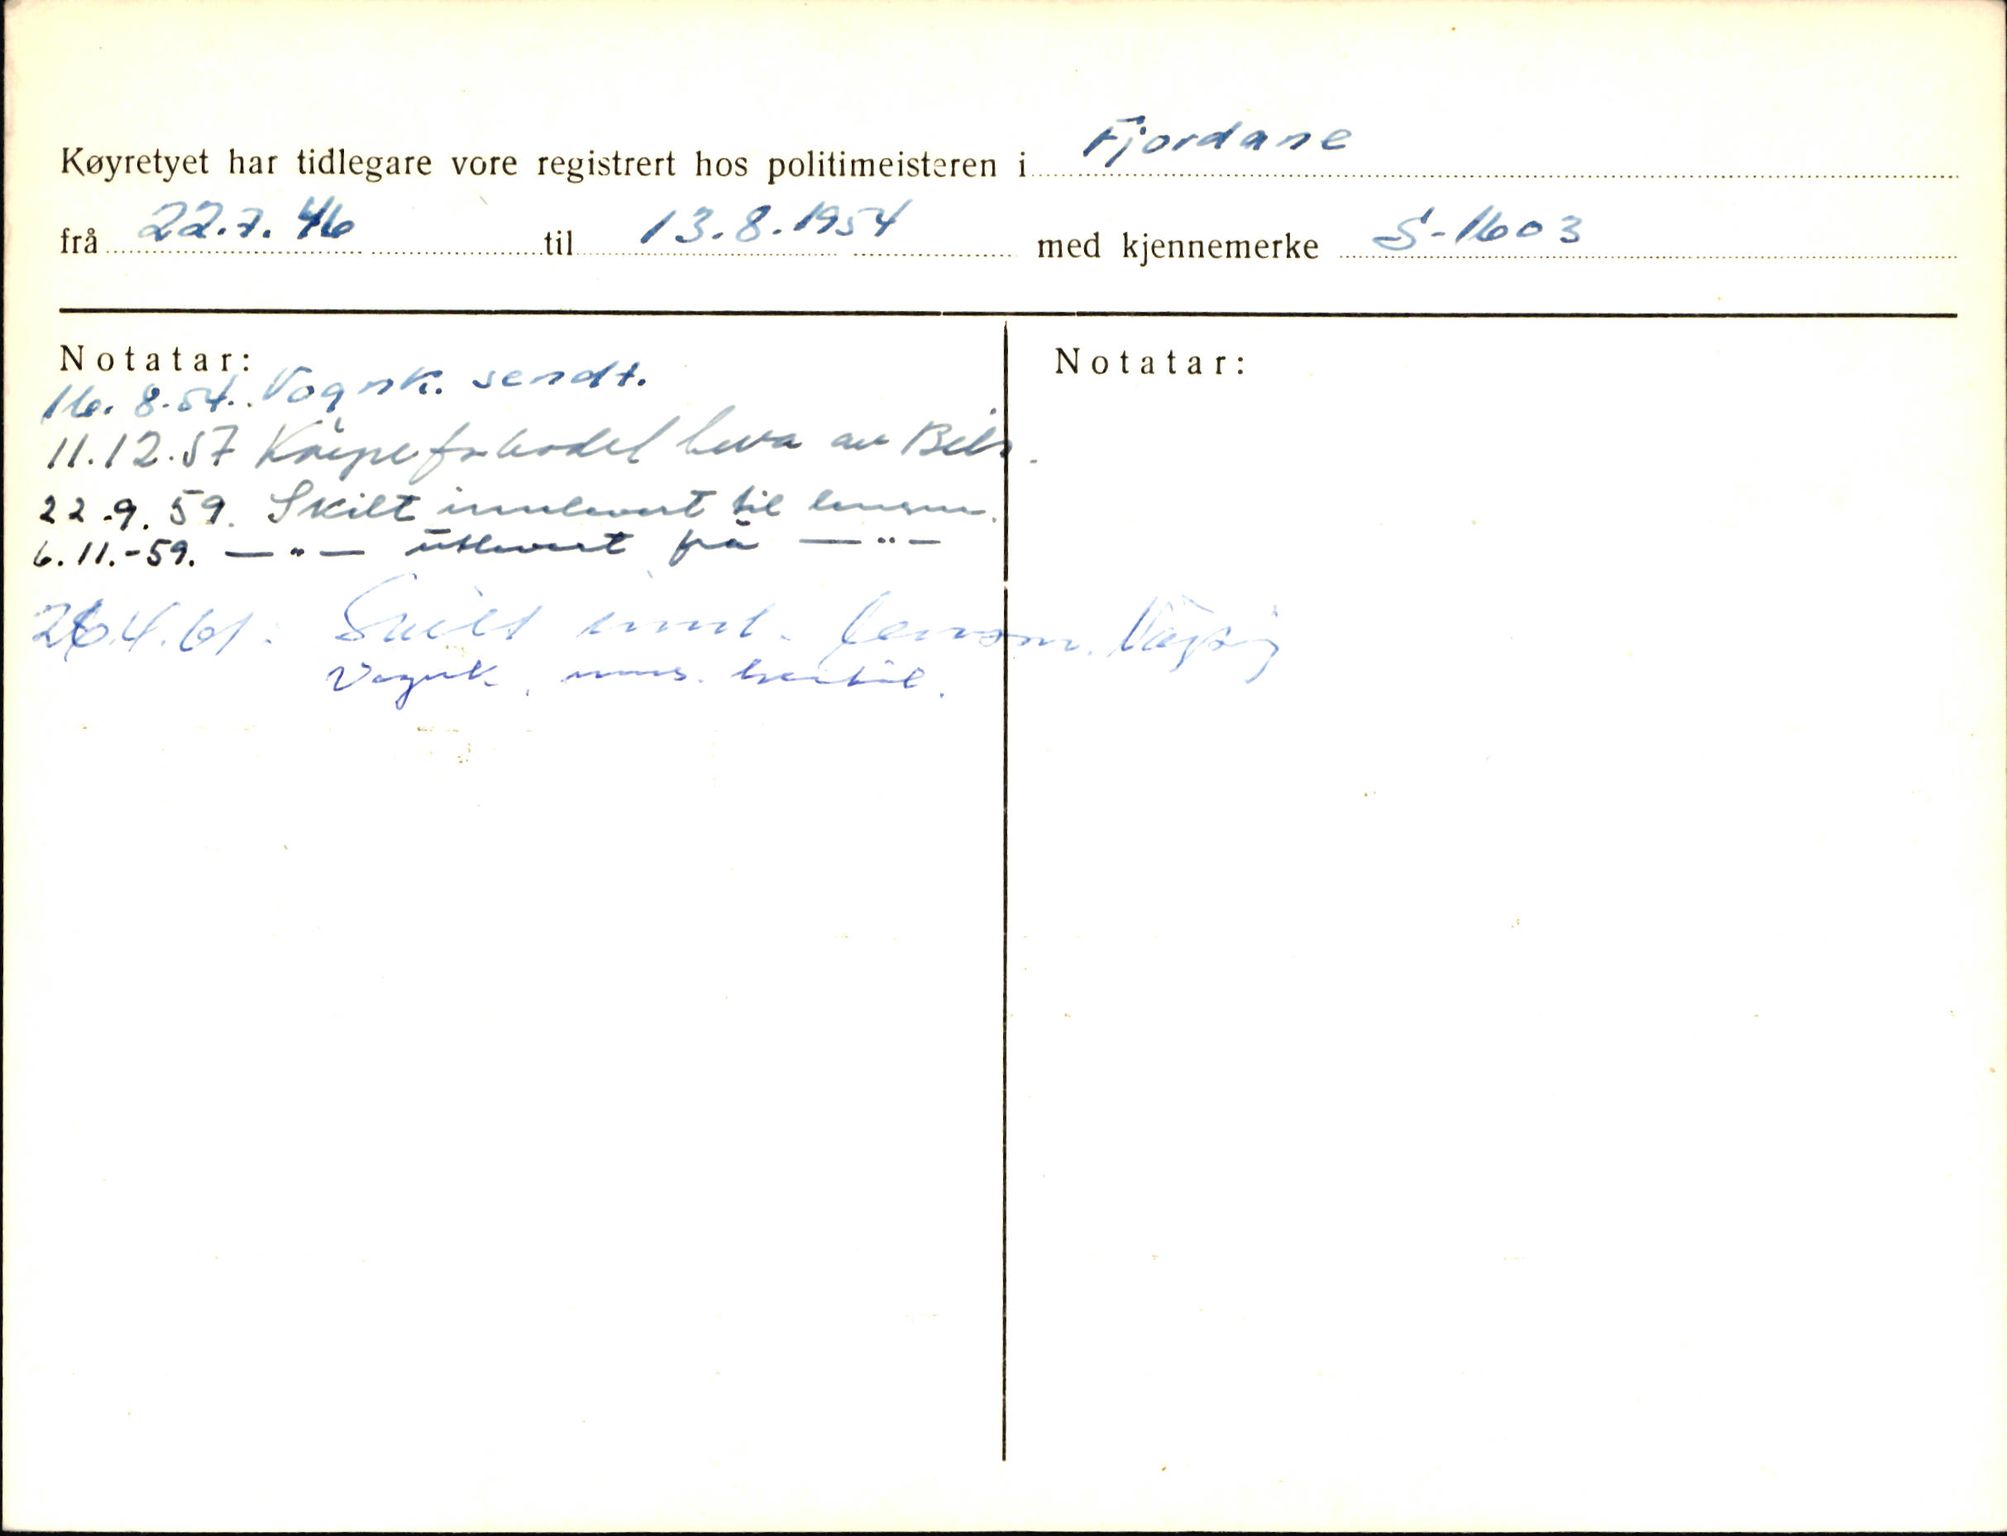 Køyretyet har tidlegare vore registrert hos politimeisteren i Fjordane
frå 22.7.46 til 13.8.1954 med kjennemerke S-1603
Notatar:
Notatar:
16.8.54. Vognk. sendt.
11.12.57 av Bils.
22.9.59. Skilt innlevert til lensm.
6.11.-59. —"— utlevert frå —"—
26.4.61. Skilt innl. lensm. Vågsøy
Vognk. inns. hertil.